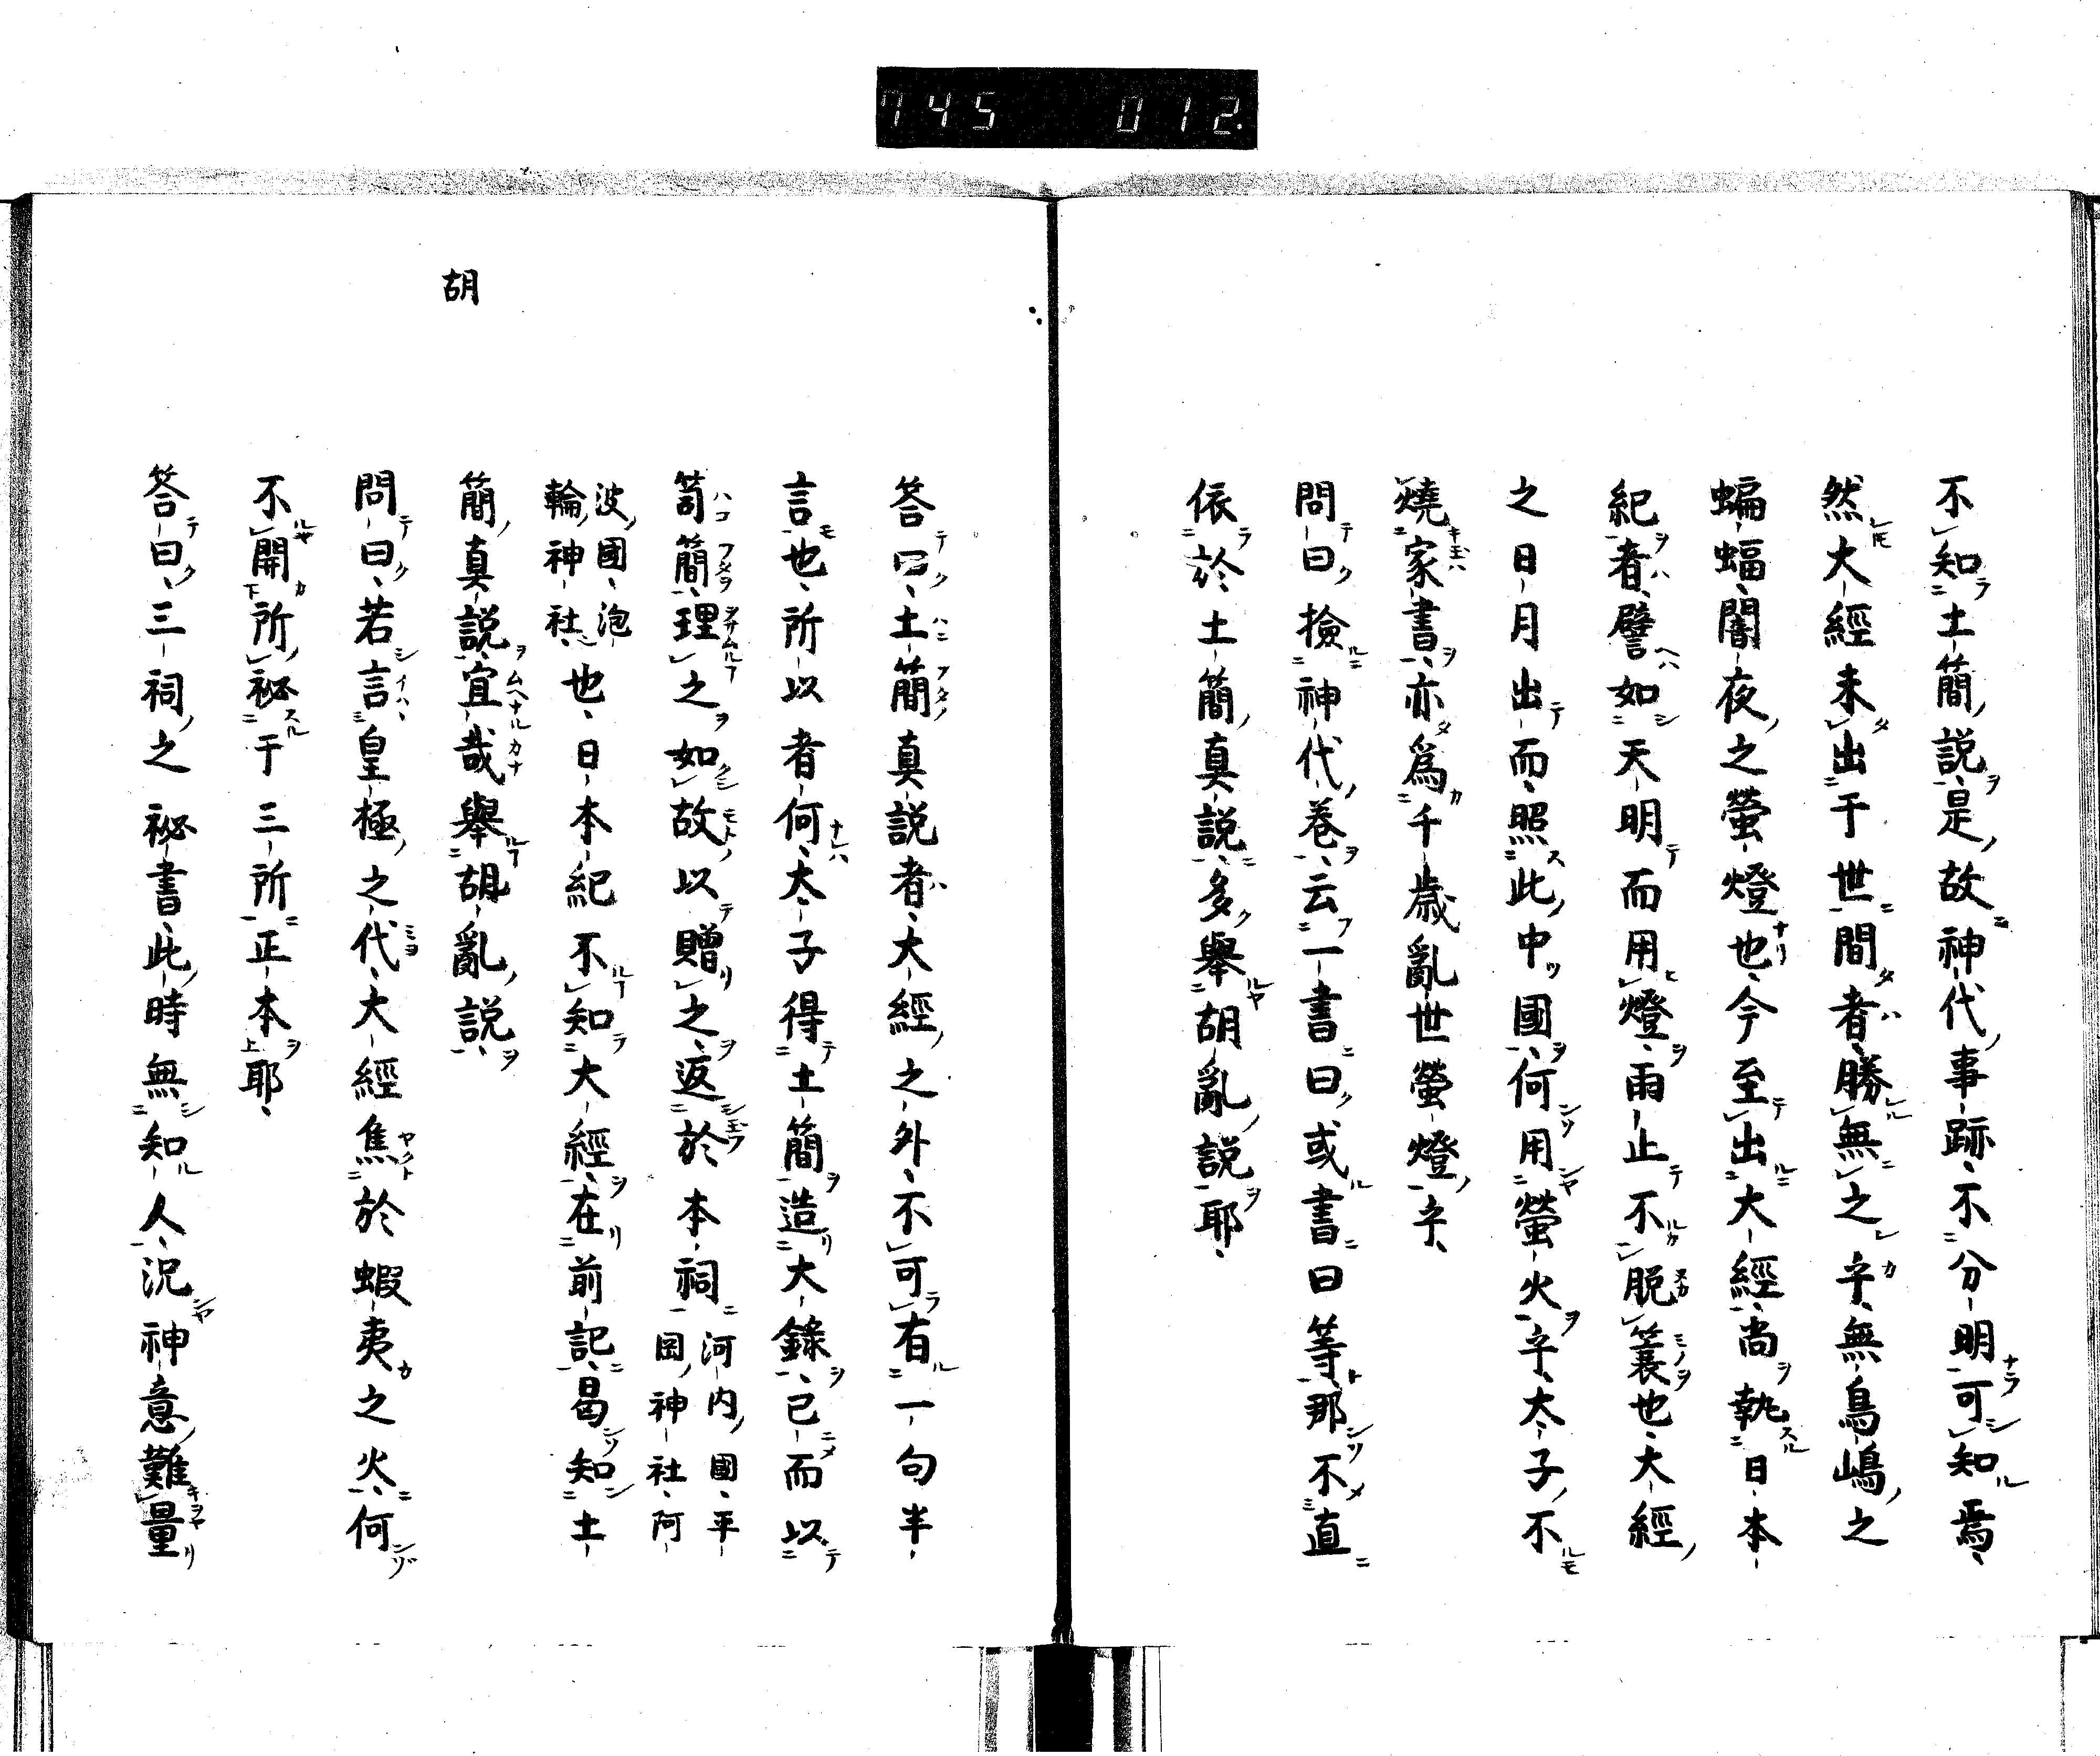 745 012.
不知土簡說是故神代事跡不分明可知焉、
然大經未出于世間者、勝無之乎、無鳥嶋之
蝙蝠、闇夜之螢燈也、今至出大經、尚執日本
紀者、譬如天明而用燈、雨止不脫簑也、大經
之日月出而、照此中國、何用螢火乎、太子不
燒家書、亦爲千歲亂世螢燈乎、
問曰、撿神代卷、云一書曰、或書曰等、那不直
依於土簡真說、多舉胡亂說耶、
答曰、土簡真說者、大經之外、不可有一句半
言也、所以者何、太子得土簡造大錄、已而以
笥簡、理之如故、以贈之、返於本祠 河內國、平岡神社、阿
波國、泡輪神社也、日本紀不知大經、在前記、曷知土
簡真說、宜哉舉胡亂說、
問曰、若言皇極之代、大經焦於蝦夷之火、何
不開所祕于三所正本耶、
答曰、三祠之祕書、此時無知人、況神意難量
胡